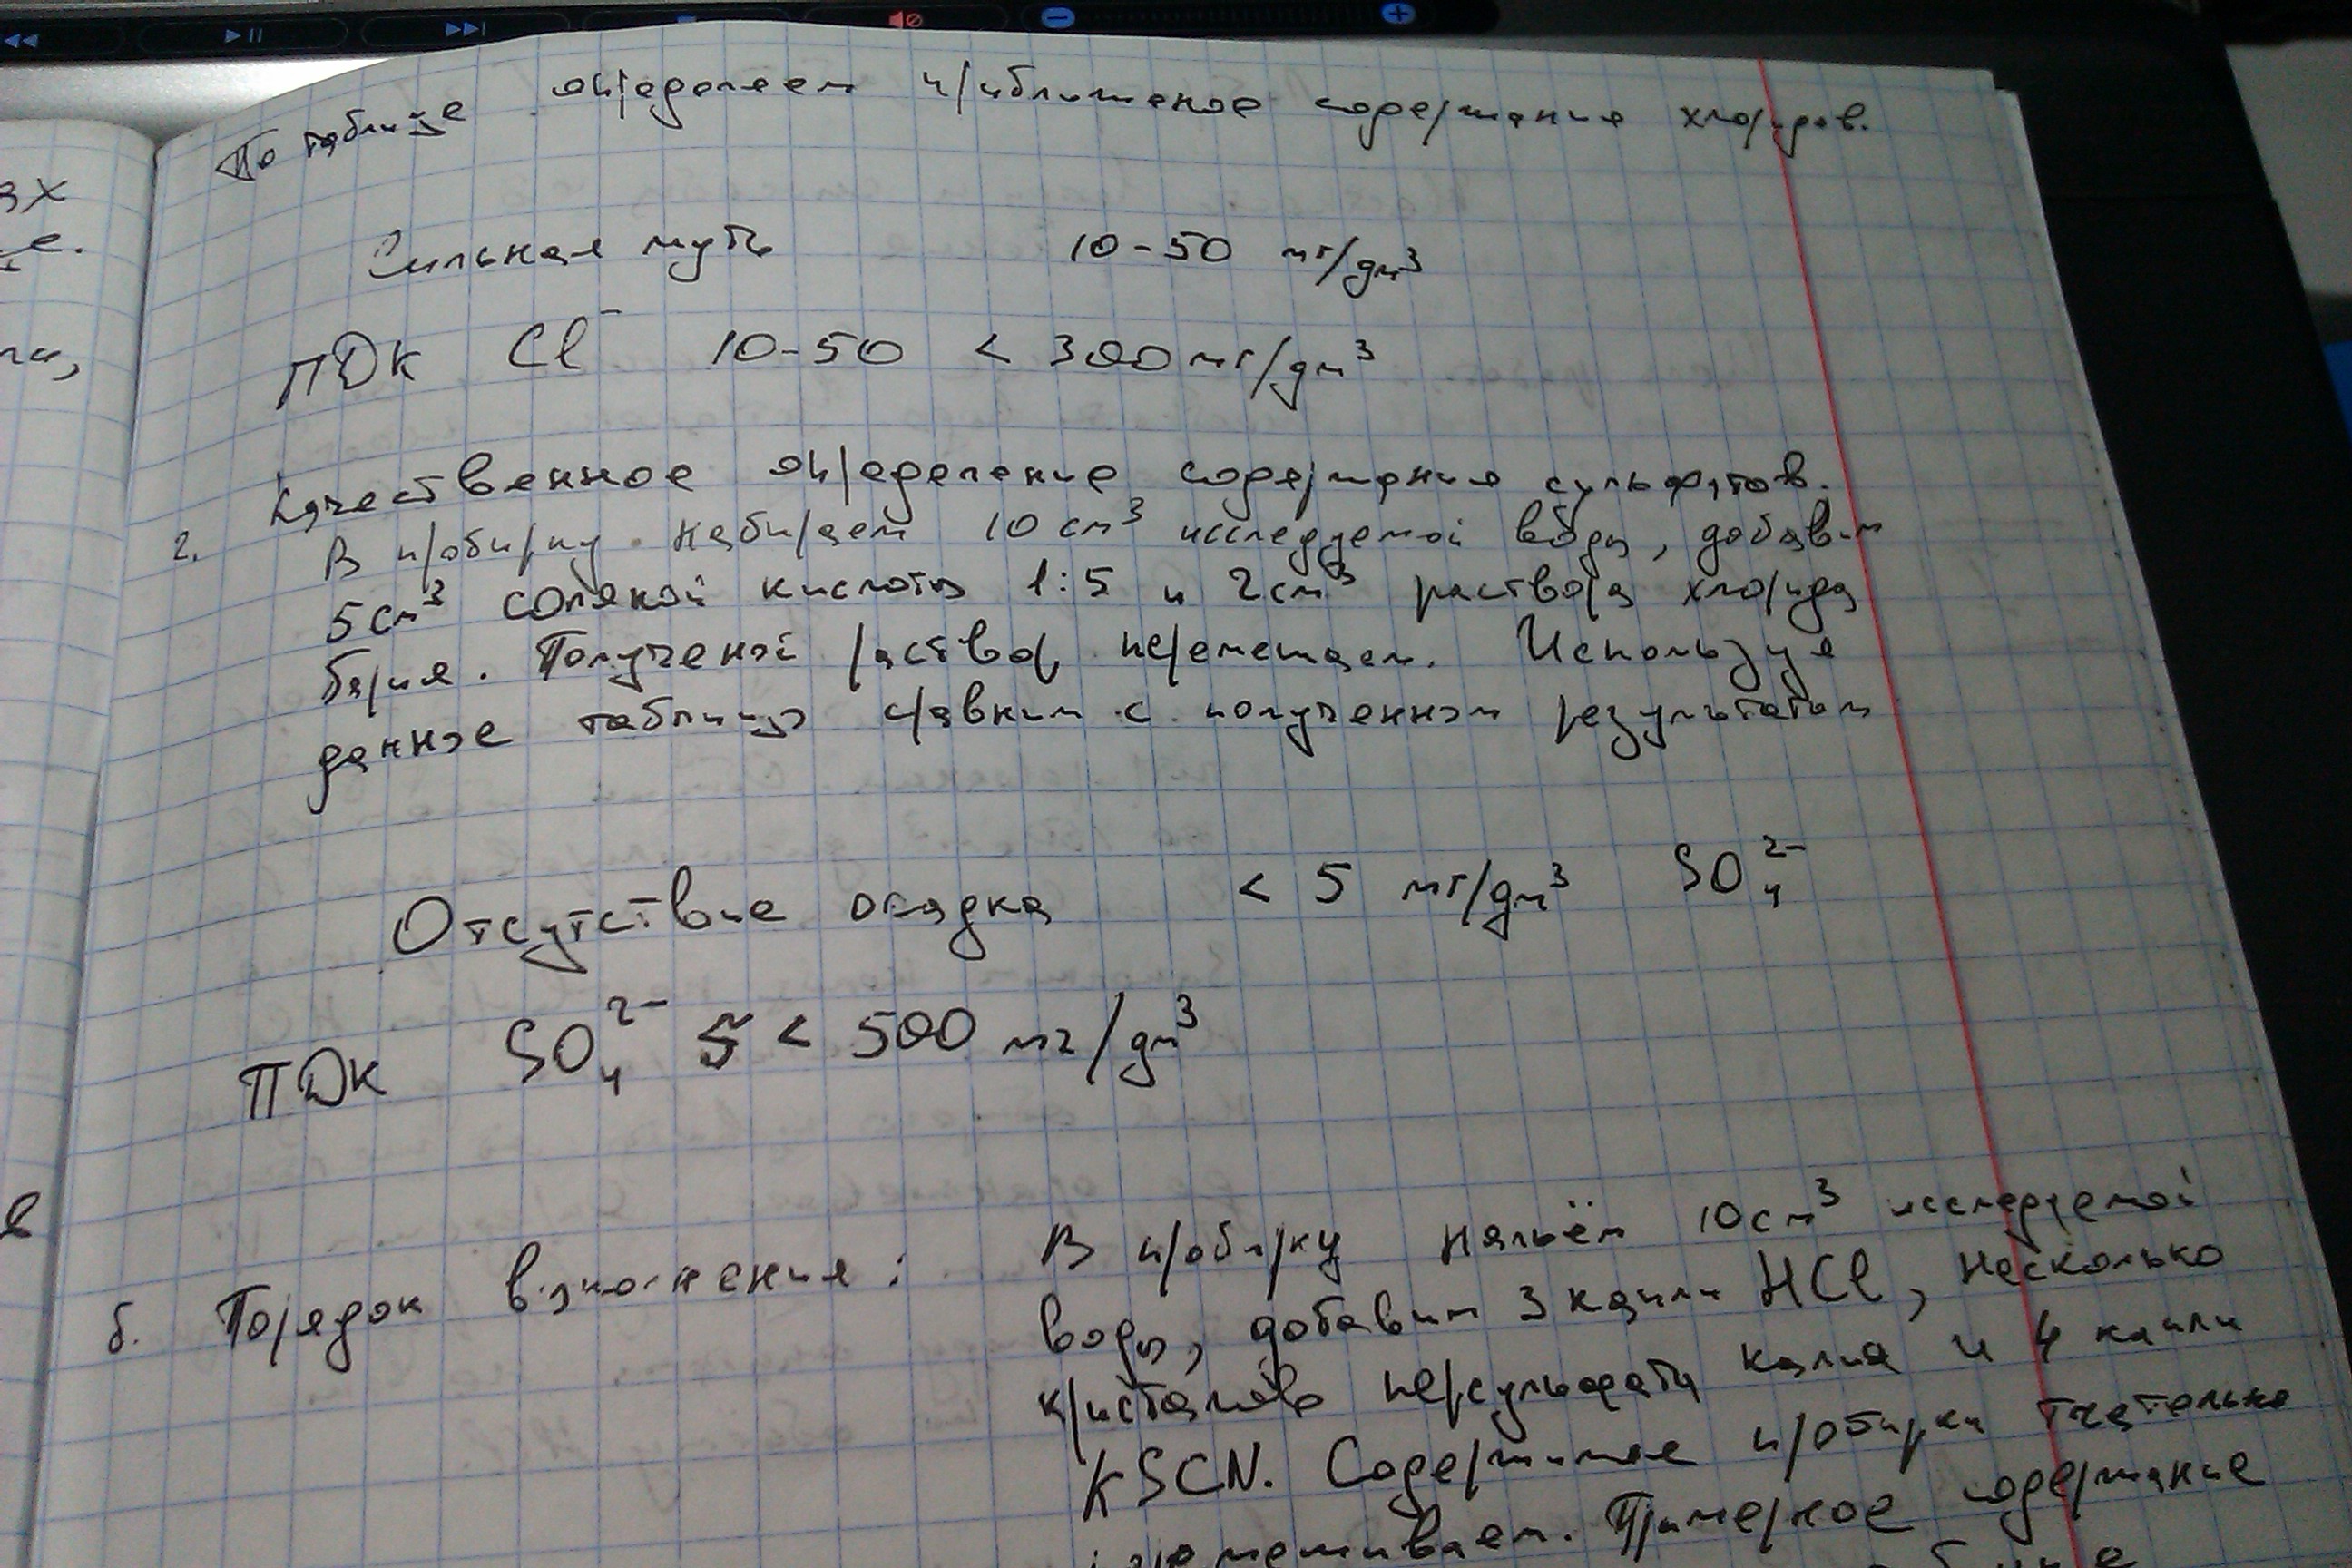 ях
е.
ли,
в
По таблице определяем приближеное содержание хлоридов.
Сильная муть 10-50 мг/дм³
ПДК Cl⁻ 10-50 < 300 мг/дм³
Качественное определение содержания сульфатов.
2. В пробирку набираем 10 см³ исследуемой воды, добавим
5 см³ соляной кислоты 1:5 и 2 см³ раствора хлорида
бария. Полученый раствор перемешаем. Используя
данные таблицы сравним с полученным результатом
Отсутствие осадка < 5 мг/дм³ SO₄²⁻
ПДК SO₄²⁻ 5 < 500 мг/дм³
б. Порядок выполнения: В пробирку нальём 10 см³ исследуемой
воды, добавим 3 капли HCl, несколько
кристалов персульфата калия и 4 капли
KSCN. Содержимое пробирки тщательно
перемешиваем. Примерное содержание